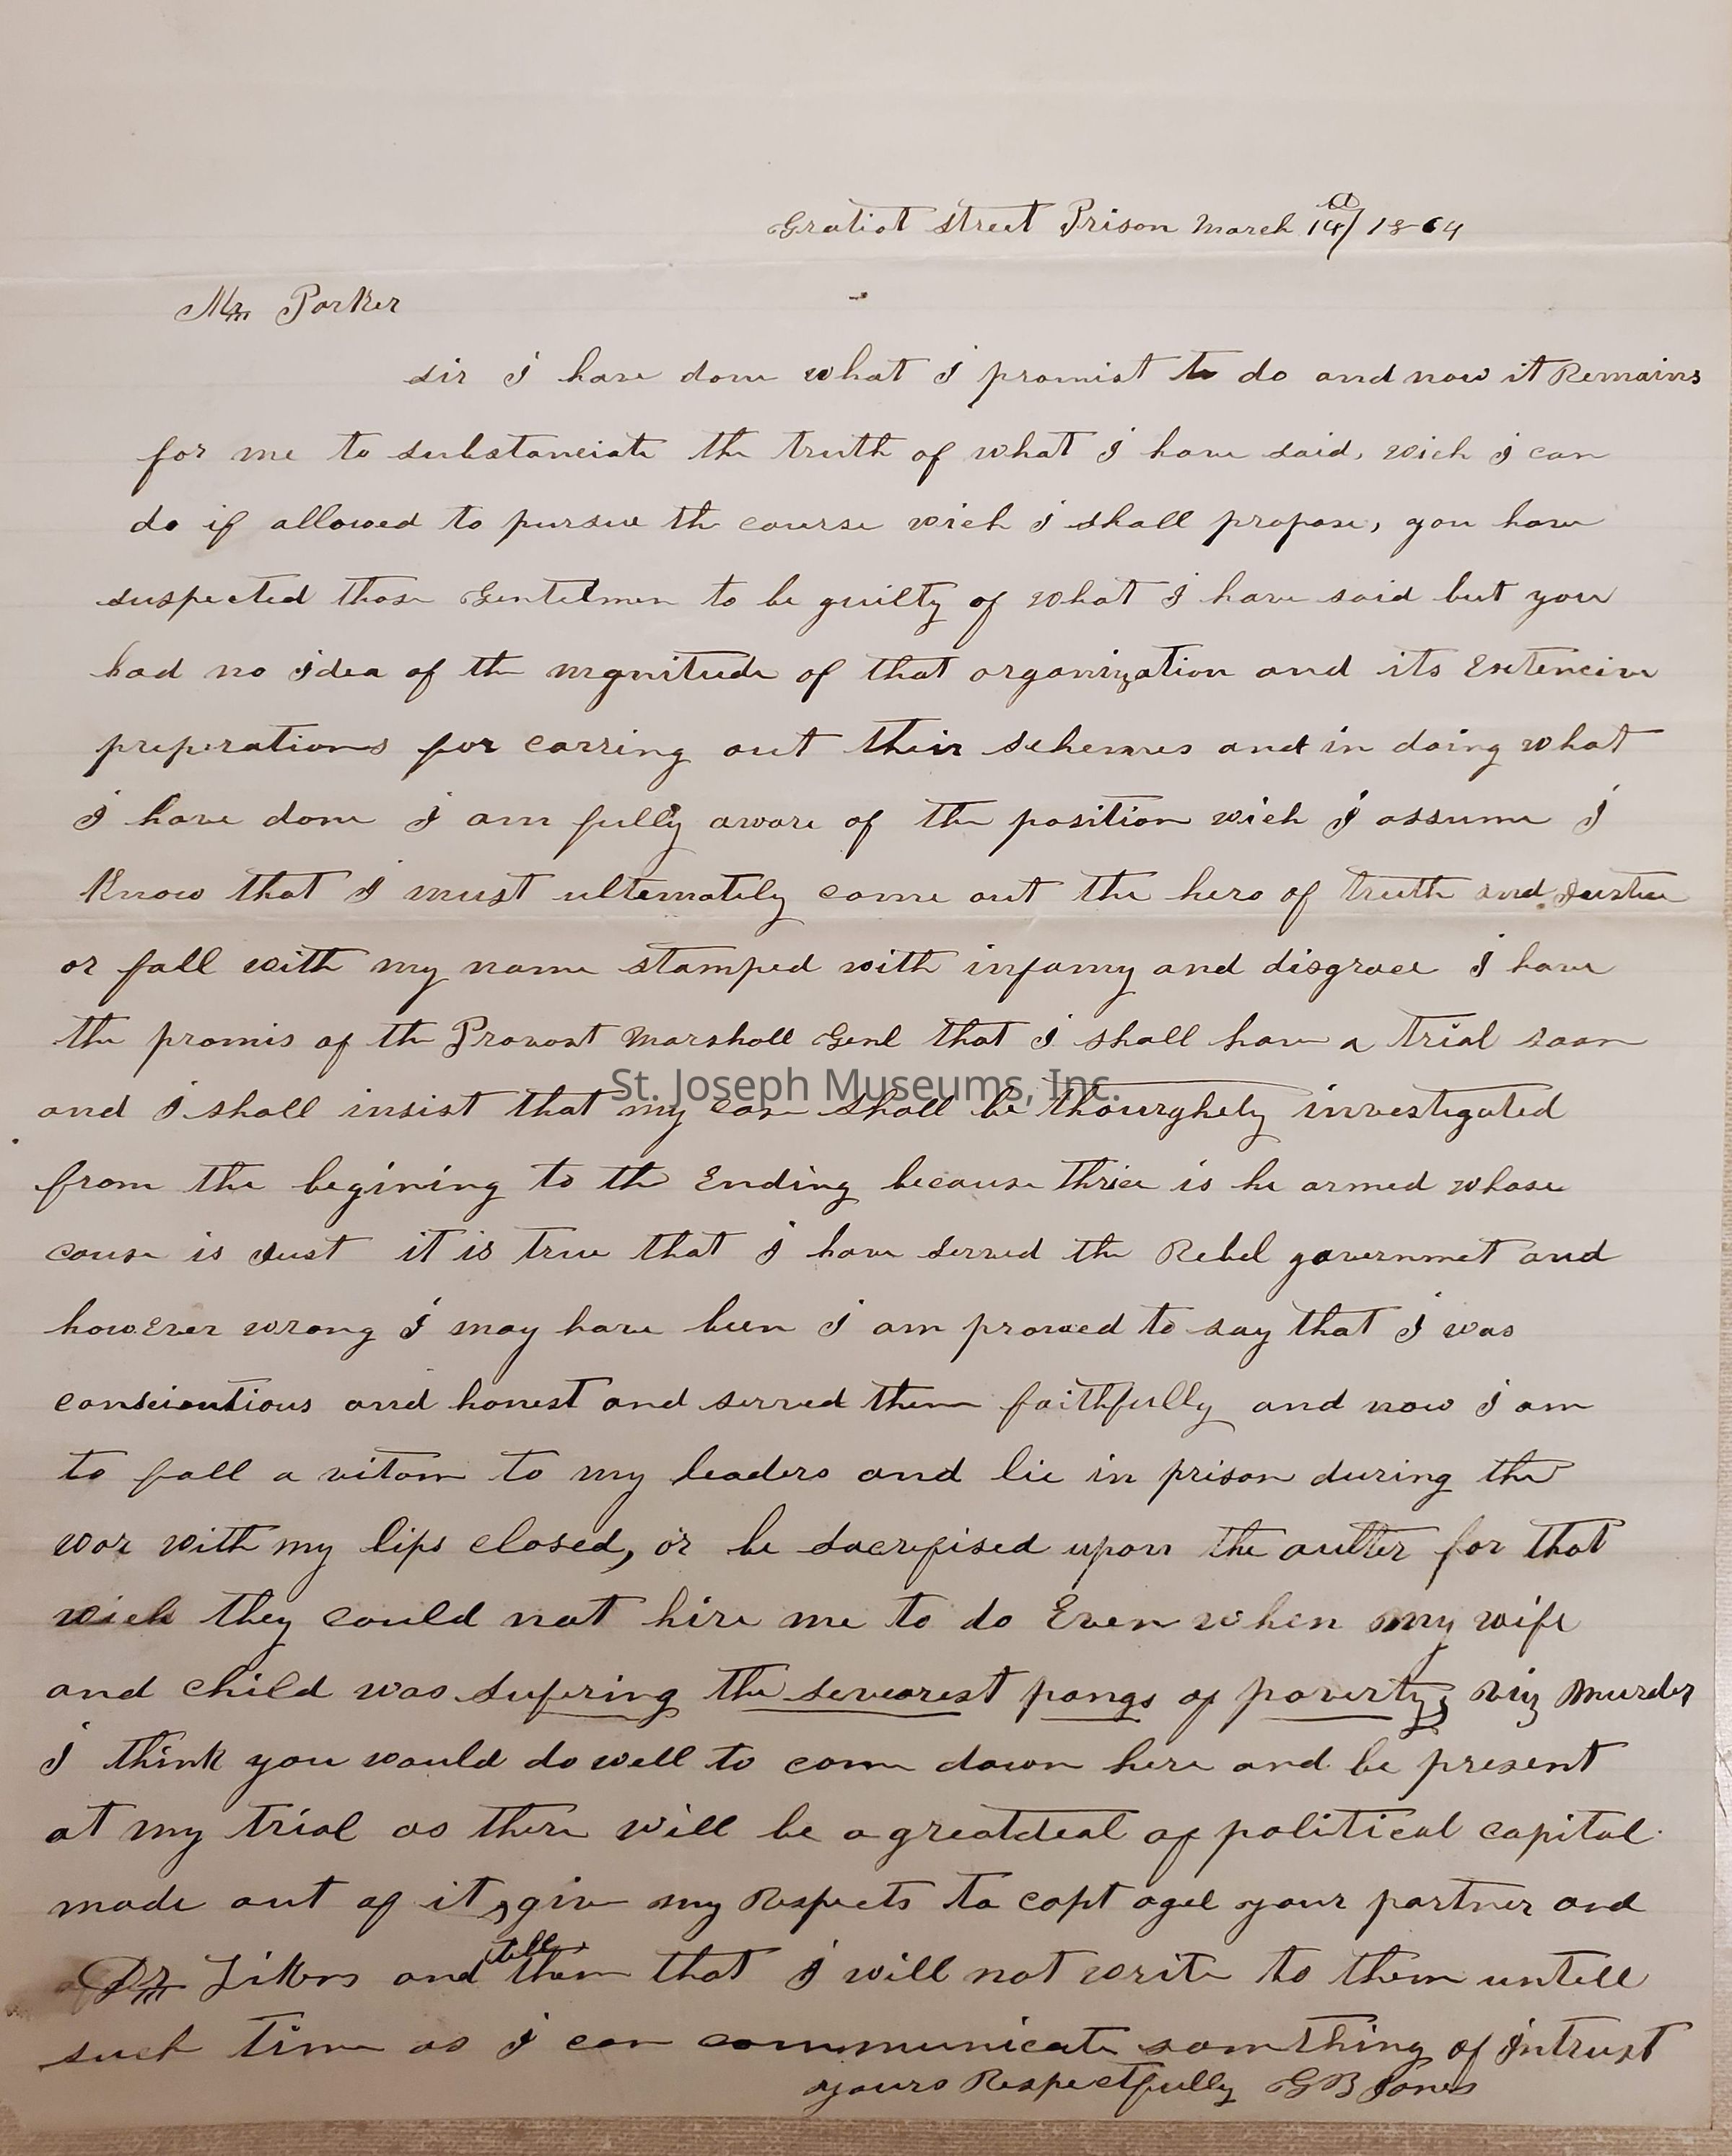 Gratiot Street Prison March 14/1864
Mr Parker
sir I have done what I promist to do and now it Remains
for me to substanciate the truth of what I have said, wich I can
do if allowed to pursue the course wich I shall propose, you have
suspected those Gentelmen to be guilty of what I have said but you
had no idea of the mgnitude of that organization and its Extencive
preperations for carring out their schemes and in doing what
I have done I am fully aware of the position wich I assume I
Know that I must ultemately come out the hero of truth and Justice
or fall with my name stamped with infamy and disgrace I have
the promis of the Provost Marshall Genl that I shall have a trial soon
St. Joseph Museums, Inc.
and I shall insist that my case shall be thourghely investigated
from the begining to the Ending because thrice is he armed whose
cause is Just it is true that I have served the Rebel governmet and
howEver wrong I may have been I am prowed to say that I was
conscioutious and honest and served them faithfully and now I am
to fall a vitom to my leaders and lie in prison during the
war with my lips closed, or be sacrefised upon the aulter for that
wich they could not hire me to do Even when my wife
and child was sufering the severest pangs of poverty; viz Murder
I think you would do well to come down here and be present
at my trial as there will be a greatdeal of political capital
made out of it, give my Respects to capt ogel your partner and
Dr Likens and tell them that I will not write to them untell
such time as I can communicate somthing of intrust
yours Respectfully G B Jones